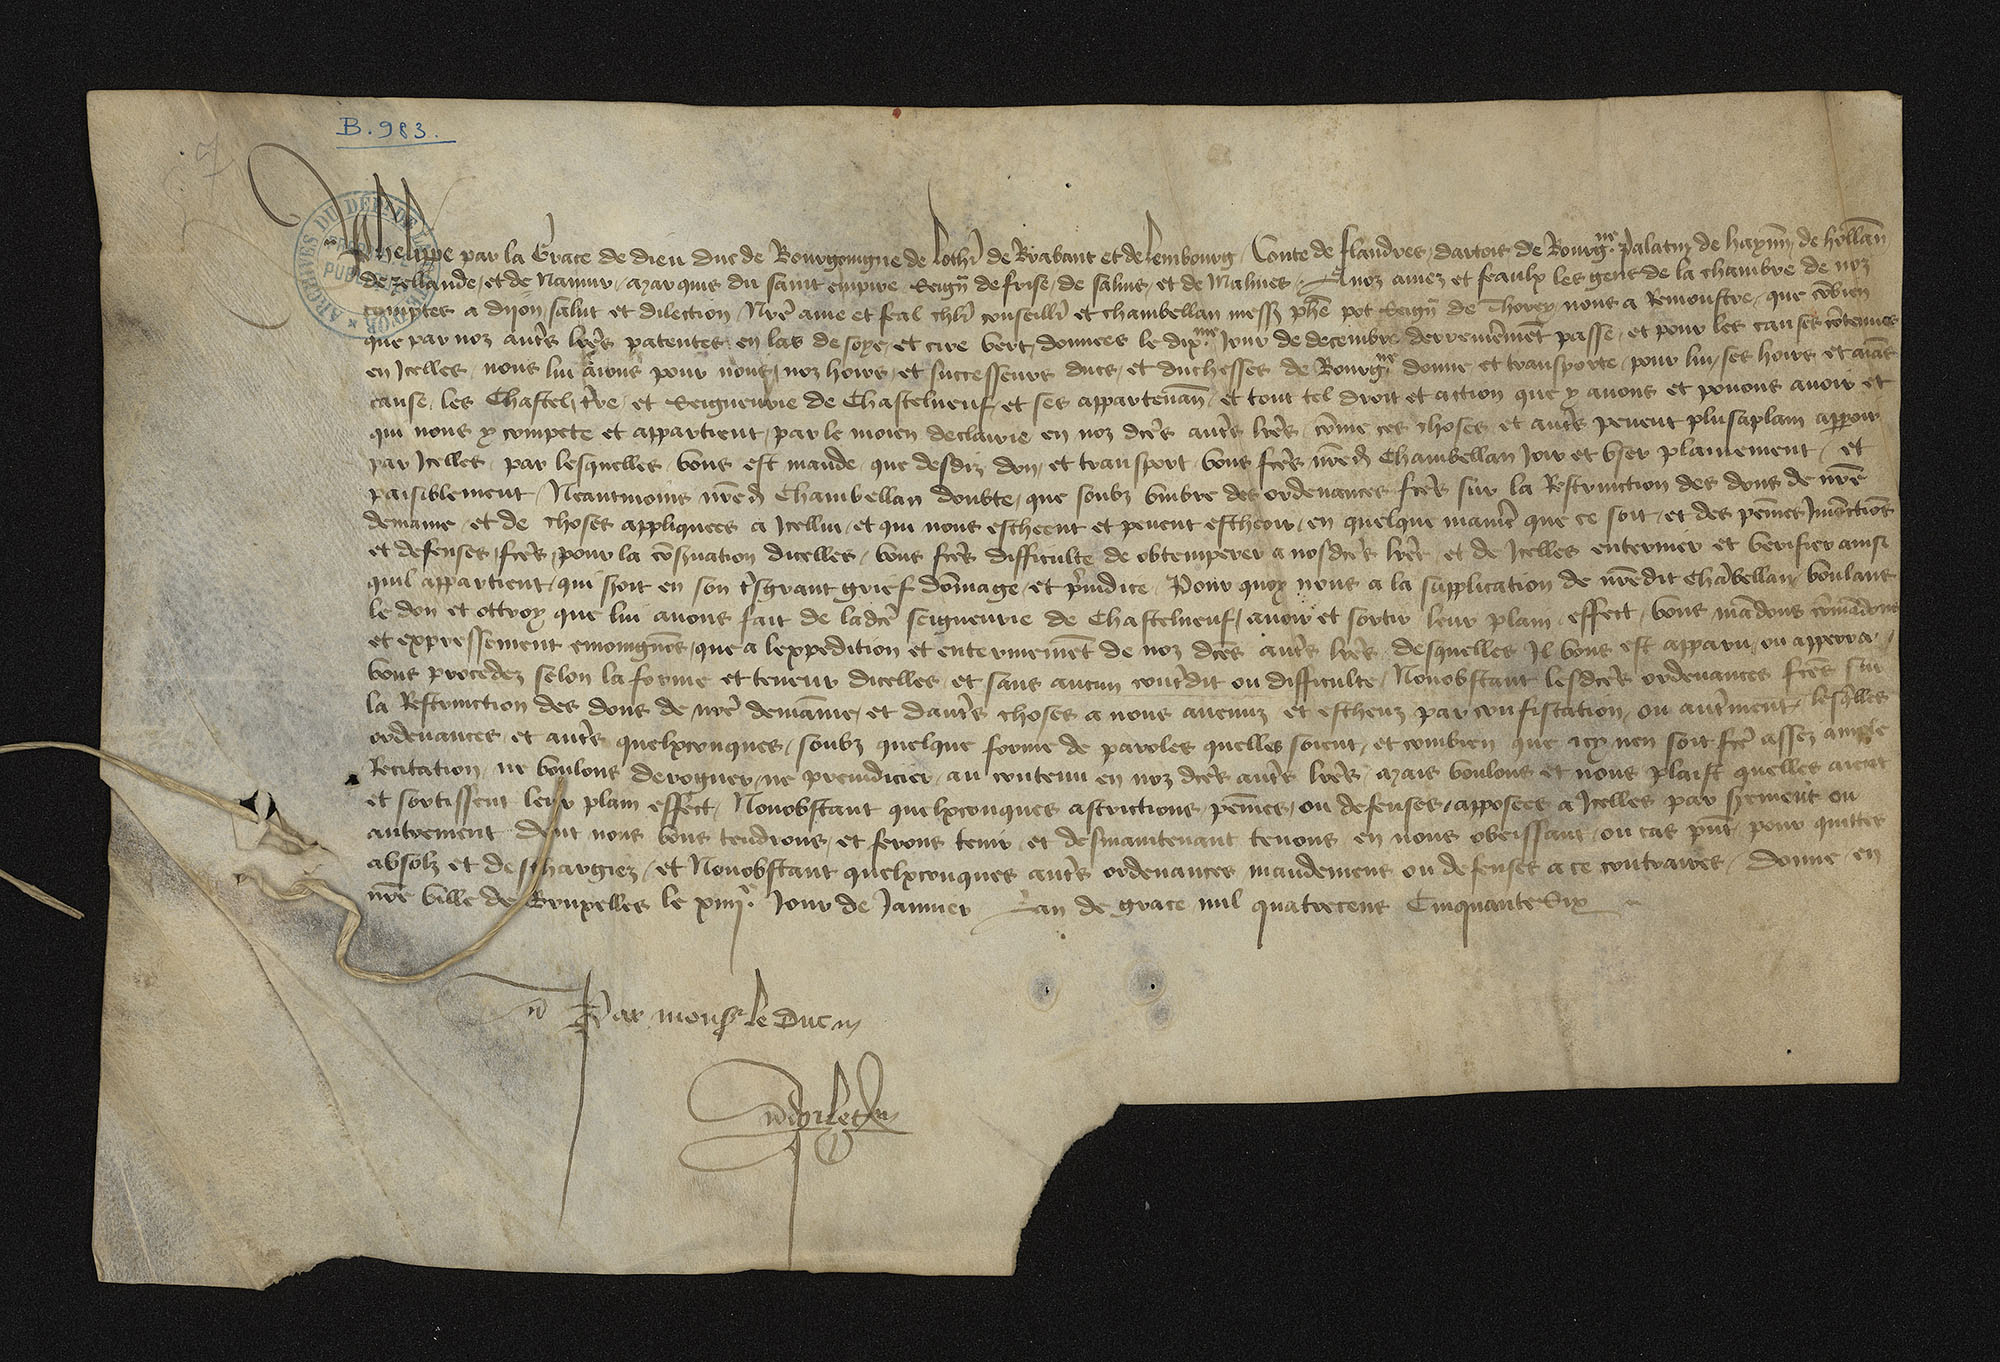 B. 983.
ARCHIVES DU DEPT DE LA COTE D'OR
Phelippe par la Grace de dieu duc de Bourgoingne de Lothr de Brabant et de Lembourg Conte de flandres dartois de Bourgne palatin de haynn de hollan
de zellande et de Namur marquis du saint empire Seigr de frise de salins et de Malines A noz amez et feaulx les gens de la chambre de noz
comptes a dijon salut et dilection Nre ame et feal chlr conseillr et chambellan messe phe pot Seigr de Thorey nous a Remonstre que cobien
que par noz autrs lrs patentes en las de soye et cire vert donnees le dixme jour de decembre derrenieremet passe et pour les causes cotenues
en Icelles nous lui aions pour nous noz hoirs et successeurs ducs et duchesses de Bourgne donne et transporte pour lui ses hoirs et aias
cause les Chastel tre et Seigneurie de Chastelneuf et ses appartenan et tout tel droit et action que y avons et povons avoir et
qui nous y compete et appartient par le moien declairie en noz dces autrs lres come ces choses et autrs pevent plusaplain apparoir
par Icelles par lesquelles vous est mande que desdiz don et transport vous fctes nred Chambellan joir et user plainement et
paisiblement Neantmoins nred Chambellan doubte que soubz umbre des ordenances fctes sur la Restrinction des dons de nre
demaine et de choses appliquees a Icellui et qui nous escheent et pevent escheoir en quelque manie que ce soit et des pmes Imoctions
et defenses fctes pour la cosvation dicelles vous fctes difficulte de obtemperer a nosdces lres et de Icelles enteriner et verifier ainsi
quil appartient qui seroit en son tresgrant grief domage et preiudice Pour quoy nous a la supplication de nredit chabellan voulans
le don et ottroy que lui avons fait de ladce seigneurie de Chastelneuf avoir et sortir leur plain effect vous madons comadons
et expressement enioingnos que a lexpedition et enterinemet de noz dces autrs lres desquelles Il vous est apparu ou apperra
vous procedez selon la forme et teneur dicelles et sans aucun contredit ou difficulte Nonobstant lesdces ordenances fctes sur
la Restrinction des dons de nre demaine et dautrs choses a nous avenuz et escheuz par confiscation ou autrment lesqlles
ordenances et autrs quelxconques soubz quelque forme de paroles quelles soient et combien que icy nen soit fce assez ample
Recitation ne voulons deroguer ne preiudicier au contenu en noz dces autrs lres mais voulons et nous plaist quelles aient
et sortissent leur plain effect Nonobstant quelxconques astrictions pmes ou defenses apposees a Icelles par serement ou
autrement dont nous vous tendrons et ferons tenir et desmaintenant tenons en nous obeissant ou cas pnt pour quittes
absolz et deschargiez et Nonobstant quelxconques autrs ordenances mandemens ou defenses a ce contraires donne en
nre ville de Bruxelles le xiiije jour de Janvier Lan de grace mil quatrecens Cinquante Six
Par monsr le Duc